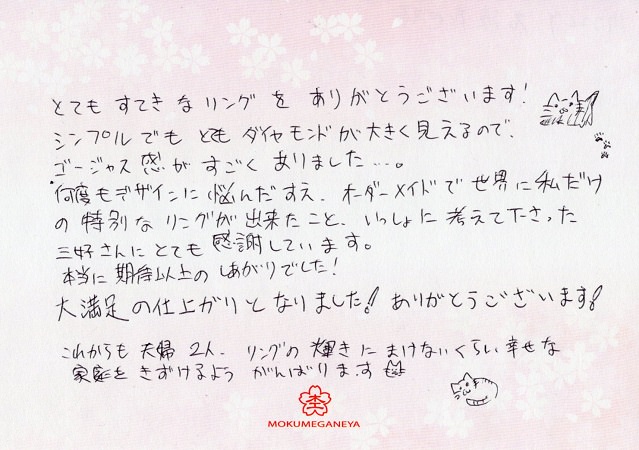 とても すてきな リングを ありがとうございます!
シンプルでも とても ダイヤモンドが大きく見えるので、
ゴージャス感が すごく ありました…。
何度もデザインに悩んだすえ、オーダーメイドで世界に私だけ
の特別な リングが出来たこと、いっしょに考えて下さった
三好さんにとても感謝しています。
本当に期待以上の しあがりでした!
大満足の仕上がりとなりました!ありがとうございます!
これからも 夫婦 2人、リングの輝きに まけないくらい 幸せな
家庭を きずけるよう がんばります
MOKUMEGANEYA